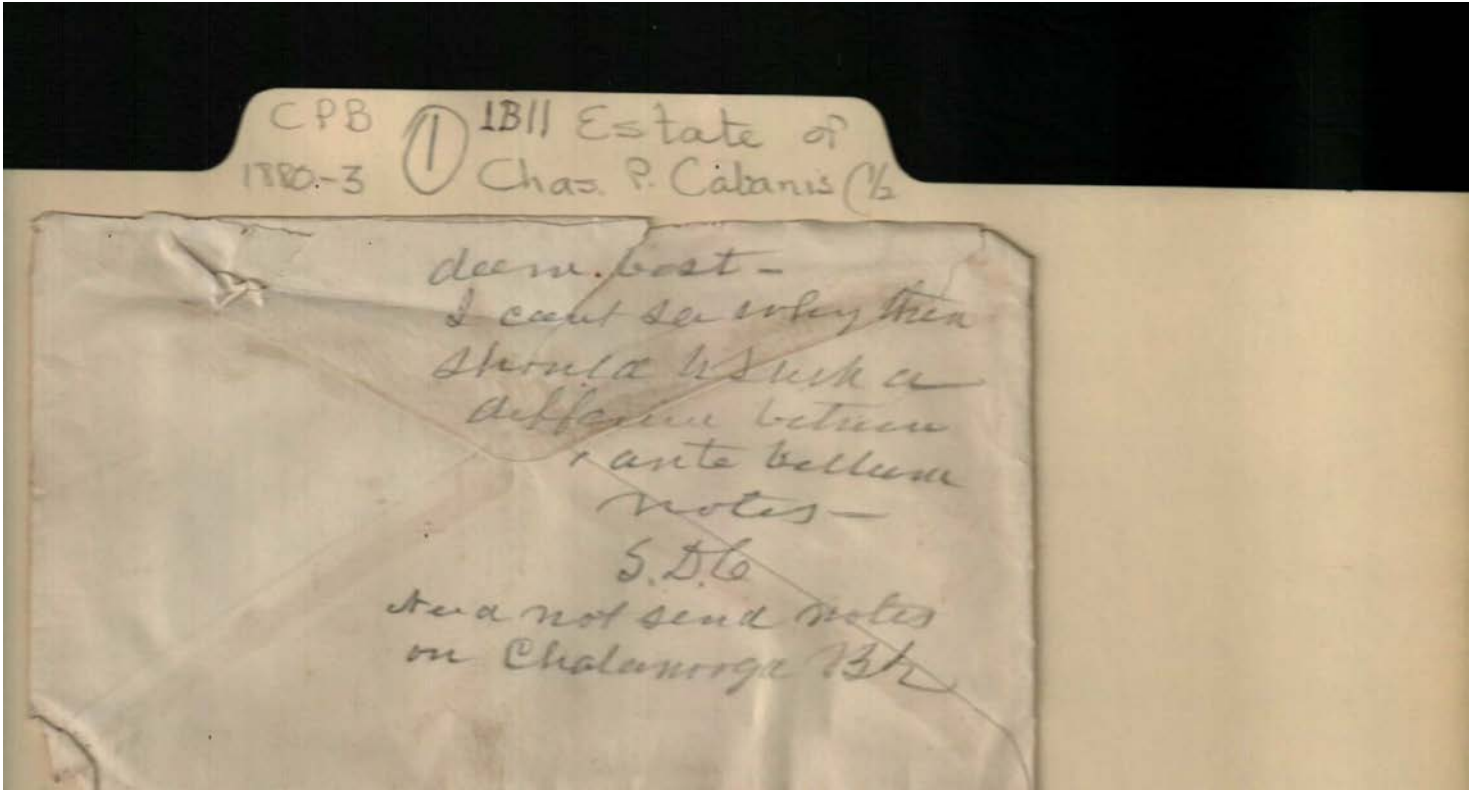 CPB ① 1B11 Estate of
1880-3 Chas. P. Cabanis (1/2
deem best -
I cant see why there
should be such a
difference between
ante bellum
notes -
S.D.C
Need not send notes
on Chatanooga Bk